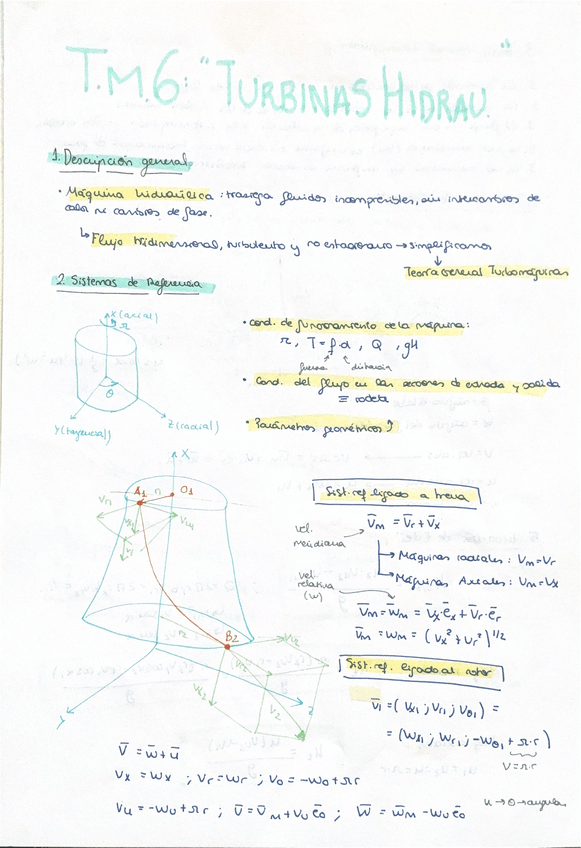 T.M.6: "TURBINAS HIDRAU."
1. Descripción general
· Máquina hidraúlica : trasiega fluidos incompresibles, sin intercambios de
calor ni cambios de fase.
↳ Flujo tridimensional, turbulento y no estacionario → simplificamos
↓
Teoría general Turbomáquinas
2. Sistemas de Referencia
X (axial)
Ω
θ
Y (tangencial)
Z (radial)
· Cond. de funcionamiento de la máquina:
Ω, T = f·d, Q, gH
fuerza
distancia
· Cond. del flujo en las secciones de entrada y salida
≡ rodete
· Parámetros geométricos
X
A1
O1
r1
B2
Y
Z
Sist. ref. ligado a tierra
vel. meridiana
V̄m = V̄r + V̄x
→ Máquinas radiales: Vm = Vr
→ Máquinas Axiales: Vm = Vx
vel. relativa (w)
V̄m = W̄m = V̄x·ēx + V̄r·ēr
V̄m = Wm = (Vx² + Vr²)^1/2
Sist. ref. ligado al rotor
V̄1 = (Vx1 ; Vr1 ; Vθ1) =
= (Wx1 ; Wr1 ; -Wθ1 + Ω·r)
V = Ω·r
V̄ = W̄ + ū
Vx = Wx ; Vr = Wr ; Vθ = -Wθ + Ω·r
u → θ → angular
Vu = -Wu + Ω·r ; V̄ = V̄m + Vu ēθ ; W̄ = W̄m - Wu ēθ